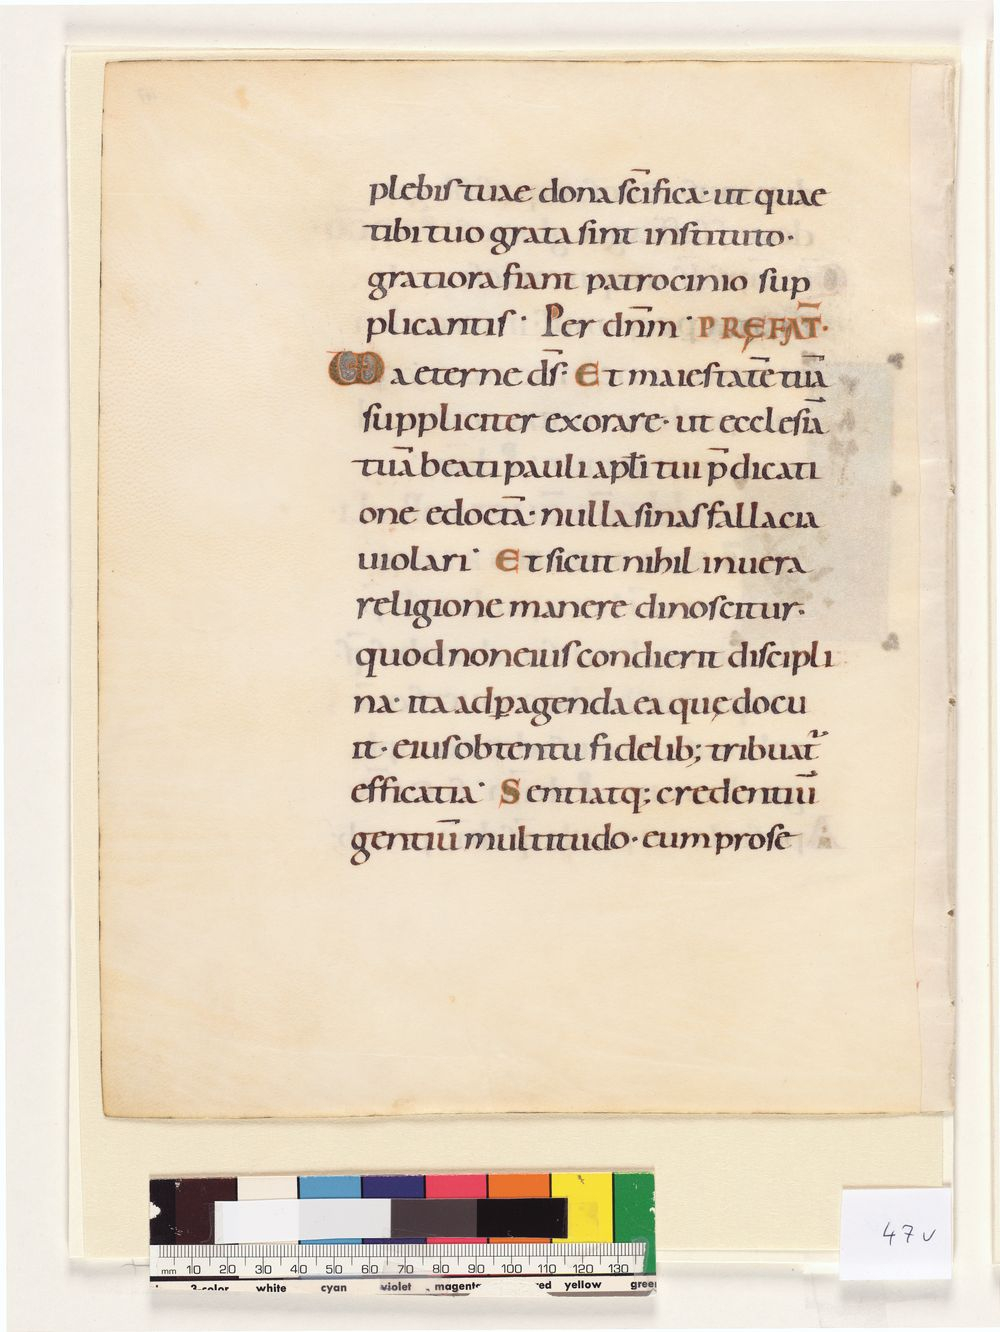 plebis tuae dona sc̄ifica· ut quae
tibi tuo grata sint instituto·
gratiora fiant patrocinio sup
plicantis· Per dn̄m· PRĘFAT̄·
a eterne ds̄· Et maiestatē tuā
suppliciter exorare· ut ecclesiā
tuā beati pauli apl̄i tui p̄dicati
one edoctā· nulla sinas fallacia
uiolari· Et sicut nihil in uera
religione manere dinoscitur·
quod non eius condierit discipli
na· ita ad ꝑagenda ea quę docu
it· eius obtentu fidelib; tribuat᷑
efficatia· Sentiatq; credentiū
gentiū multitudo· eum pro se
47v
mm 10 20 30 40 50 60 70 80 90 100 110 120 130
3-color white cyan violet magenta red yellow green